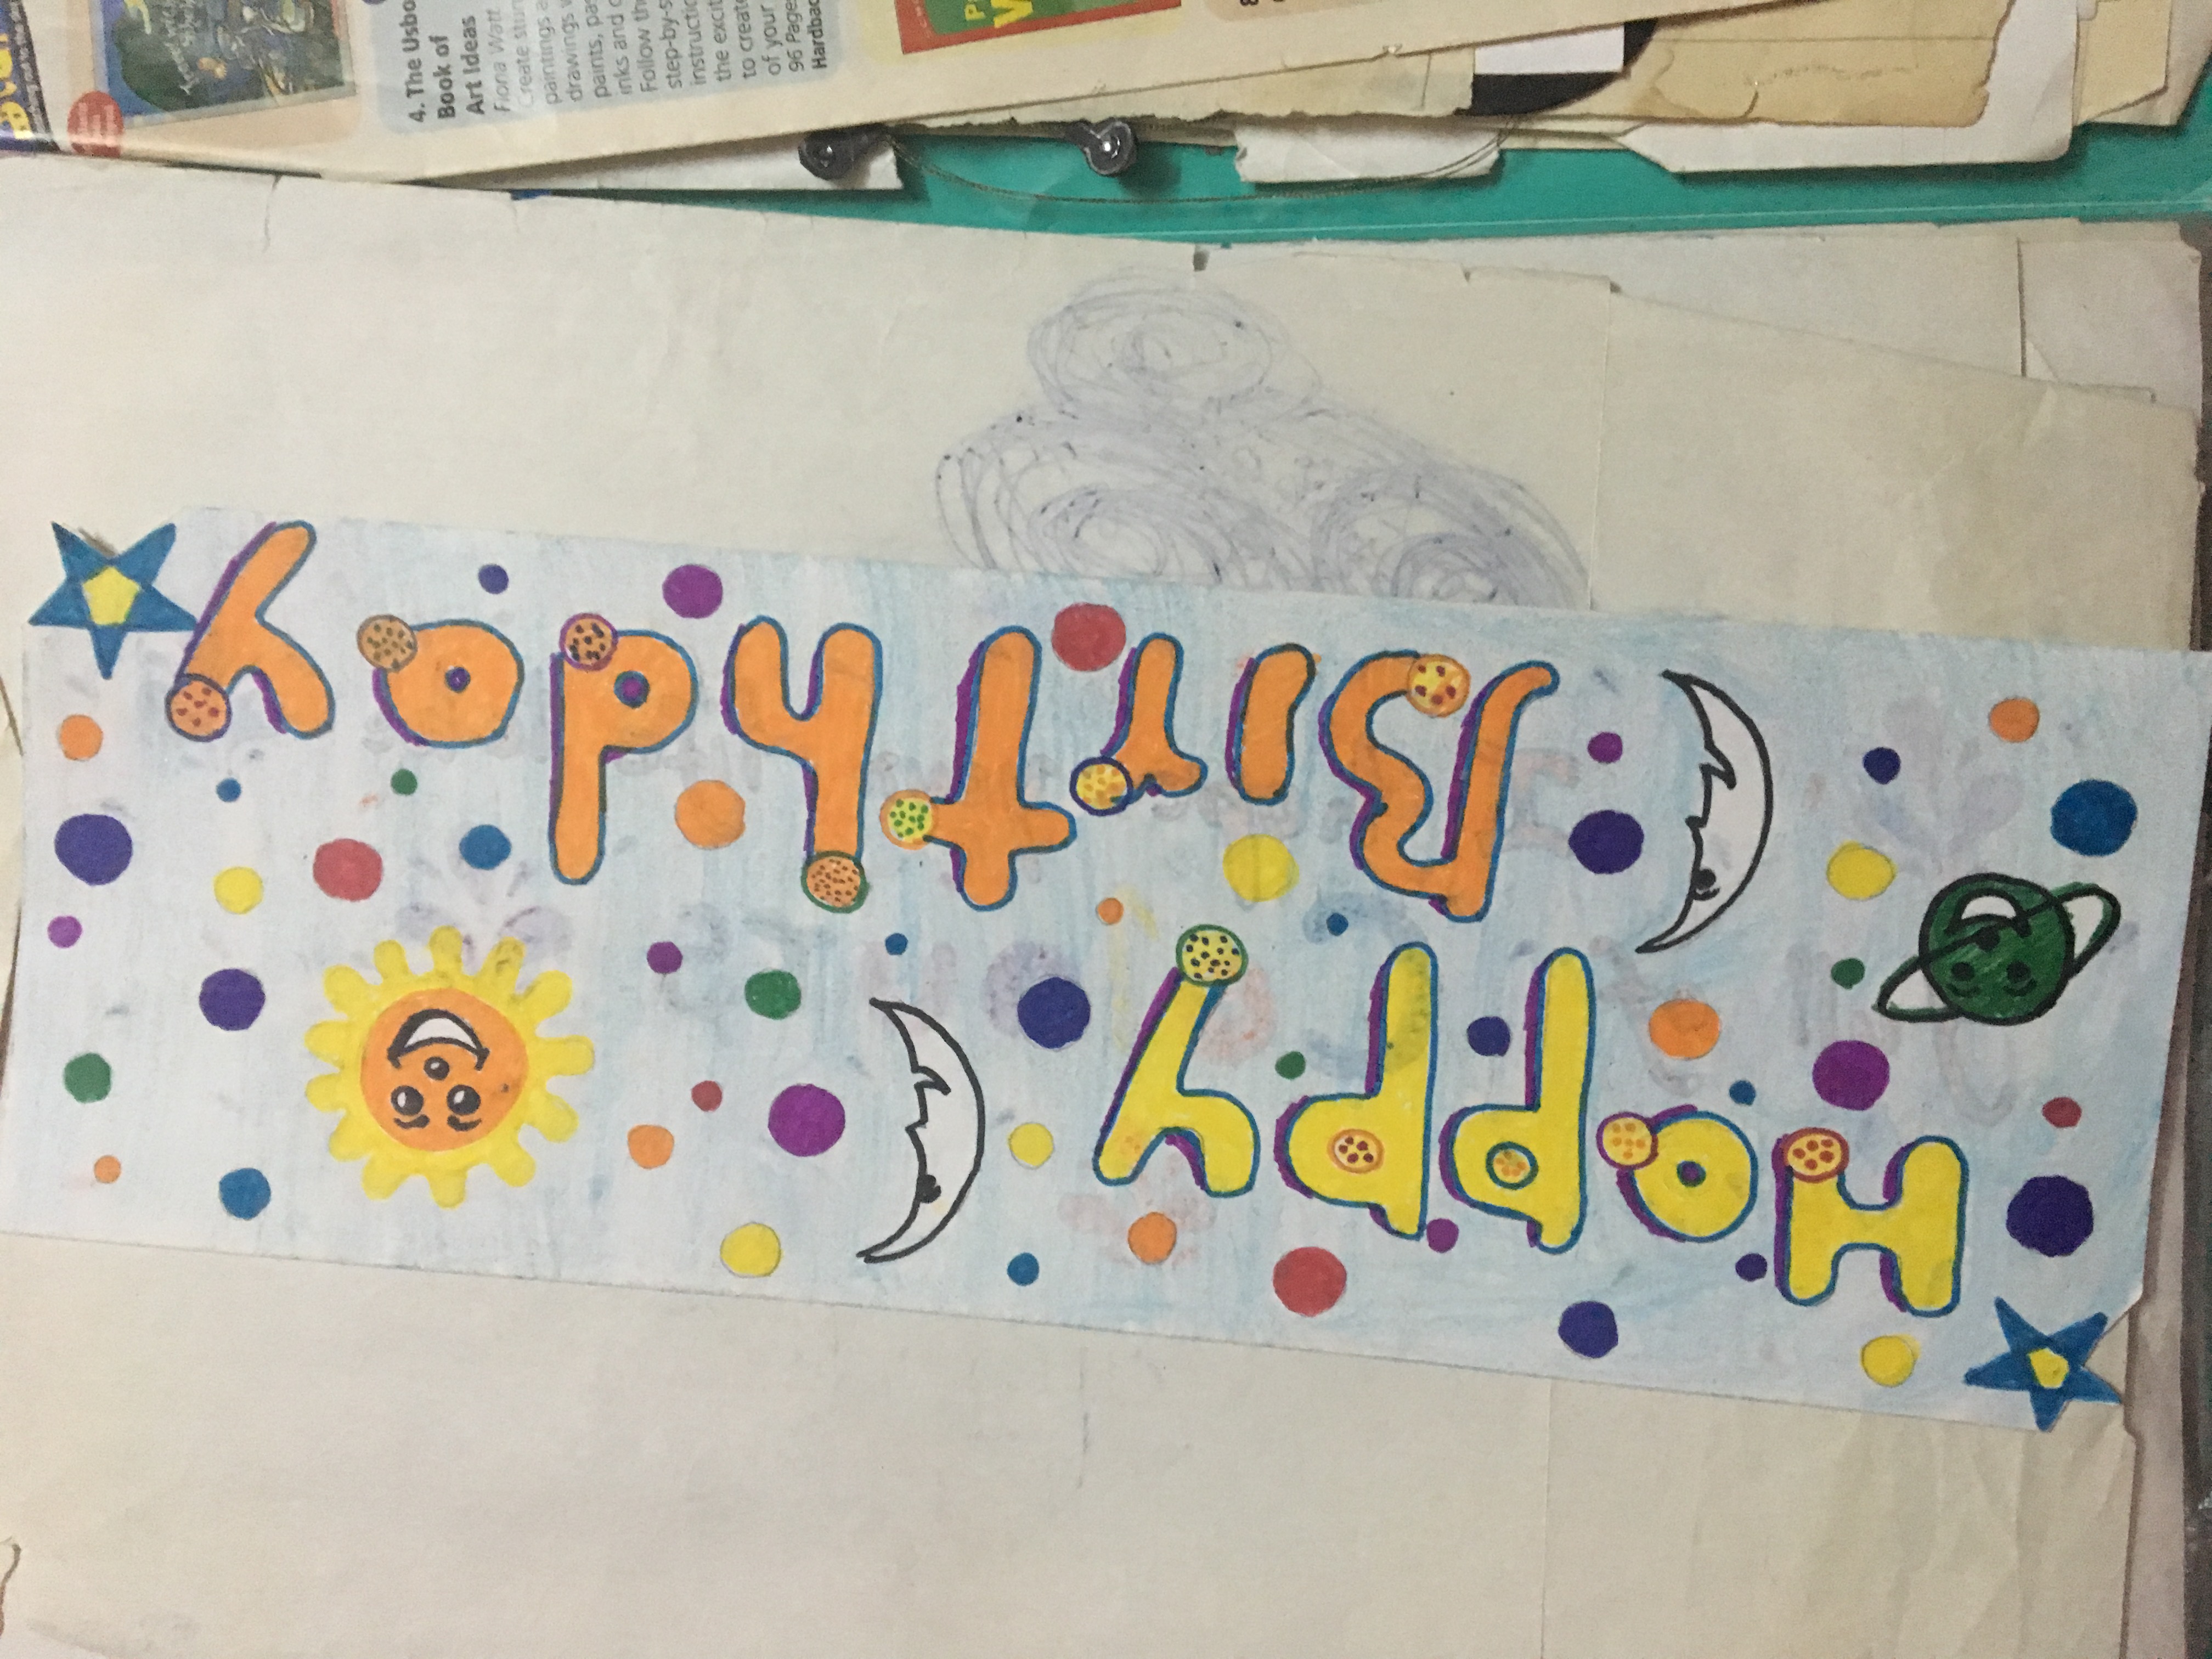 Happy
Birthday
4. The Usbo
Book of
Art Ideas
Fiona Watt
Create stun
paintings a
drawings w
paints, pa
inks and c
Follow th
step-by-s
instructio
the excit
to create
of your
96 Page
Hardbac